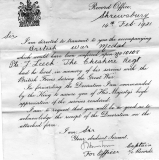 Record Office,
Shrewsbury
14th Feb 1921
Sir
I am directed to transmit to you the accompanying
British War Medal
which would have been conferred upon
Pte J Leech The Cheshire Regt
had he lived, in memory of his services with the
British Forces during the Great War.
In forwarding the Decoration I am commanded
by the King to assure you of His Majesty's high
appreciation of the services rendered.
I am to request that you will be so good as to
acknowledge the receipt of the Decoration on the
attached form.
I am,
Sir,
Your obedient Servant,
Captain
For Officer i/c Records